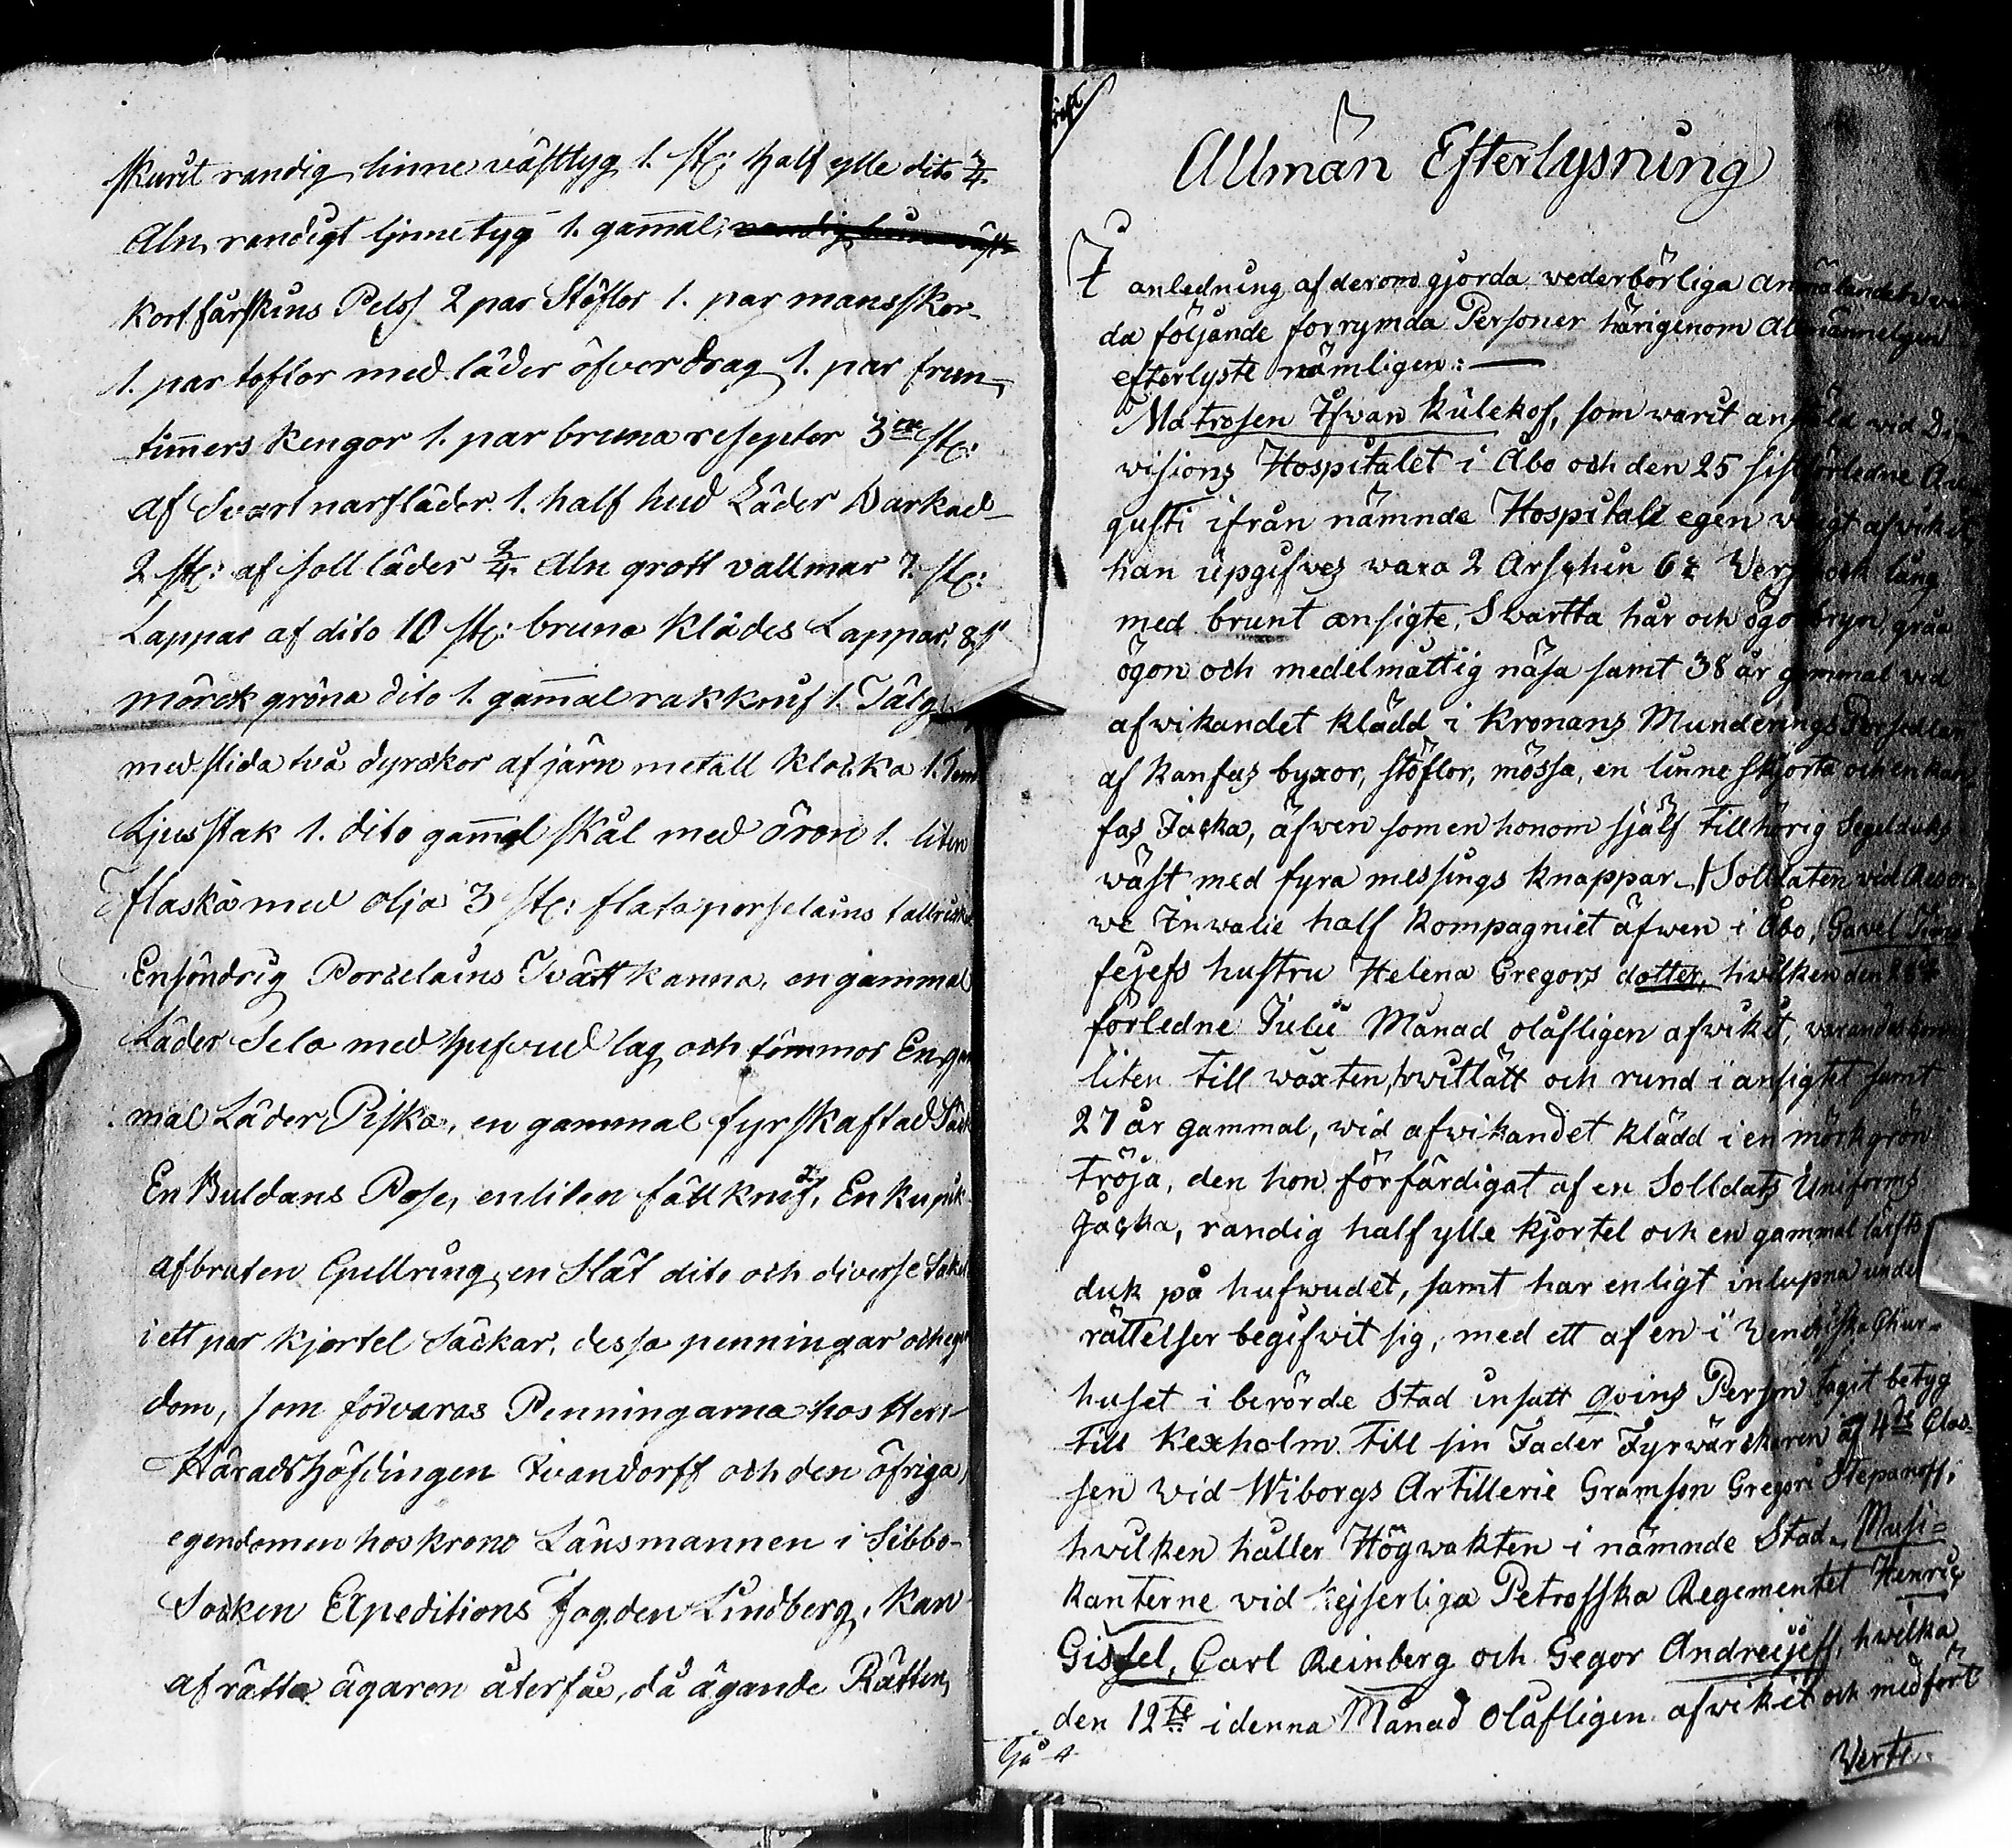 skurit randig linne västtyg 1. st: half ylle dito 3/4.
Aln, randigt linnetyg 1. gam̄al,
kort fårskins Pels 2 par Stöflor 1. par mansskor
1. par toflor med läder öfverdrag 1. par frun-
tim̄ers kengor 1. par bruna 3ne st:
af Svart narfläder 1. half hud Läder Barkad
2 st: af soll läder 3/4. Aln grott vallmar 7. st:
Lappar af dito 10 st: bruna Klädes Lappar, 8 st
mörck gröna dito 1. gam̄al rakknif 1. Tälg
med slida två dyrckor af järn metall klocka 1. Ten
Ljusstak 1. dito gam̄al skål med öron 1. liten
flaska med olja 3 st: flata porselains tallrick
En söndrig Porcelains Tvätt kanna, en gammal
Läder Sela med hufvud lag och tömmor En gam
mal Läder Piska, en gammal fyrskaftad Säck
En Buldans Påse, en liten fäll knif, En
afbruten Gullring, en Slät dito och diverse Saker
i ett par kjortel Säckar, dessa penningar och egen
dom, som förvaras Penningarna hos Herr
Häradshöfdingen Ivandorff och den öfriga
egendomen hos krono Länsmannen i Sibbo
Socken Expeditions Fogden Lindberg, kan
af rätta ägaren återfås, då ägande Rätten,
Allmän Efterlysning
I anledning af derom gjorda vederbörliga anmälanden var
da följande förrymda Personer härigenom Allmänneligen
efterlyste nämligen: —
Matrosen Ifwan Kulekof, som warit anstäld vid Di-
visions Hospitalet i Åbo och den 25 sistförledne Au-
gusti ifrån nämnde Hospitall egen vilgt afvikit
han upgifves wara 2 Arschin 6½ Verschock lång
med brunt ansigte, Swartta hår och ögonbryn gråa
ögon och medelmåttig näsa samt 38 år gammal vid
afwikandet klädd i Kronans Munderings Persedlar
af kanfas byxor, stöflor, mössa, en linne Skjorta och en kan
fas Jacka, äfwen som en honom sjelf tillhörig Segelduks
wäst med fyra messings knappar. Solldaten vid Reser-
we Inwalie half kompagniet äfwen i Åbo, Gavel Timo
fejefs hustru Helena Gregors dotter, hvilken den 28de
förledne Julii Månad olåfligen afvikit, varandes hon
liten till wäxten, hwitlätt och rund i ansigtet samt
27 år gammal, wid afwikandet klädd i en mörkgrön
tröja, den hon förfärdigat af en Solldats Uniforms
Jacka, randig half ylle kjortel och en gammal lärfts
duk på hufwudet, samt har enligt inlupna under
rättelser begifvit sig, med ett af en i Wenerisk Chur-
huset i berörde Stad insatt Qvins Person tagit betyg
till Kexholm till sin Fader Fyrwärckaren af 4de Clas-
sen wid Wiborgs Artillerie Gramson Gregori Stepanoff,
hvilken håller Högwakten i nämnde Stad, Musi=
kanterne vid Kejserliga Petrofska Regementet Henric
Gissel, Carl Reinberg och Gegor Andrejeff, hwilka
den 12te i denna Månad Olåfligen afwikit och medfört
Verte